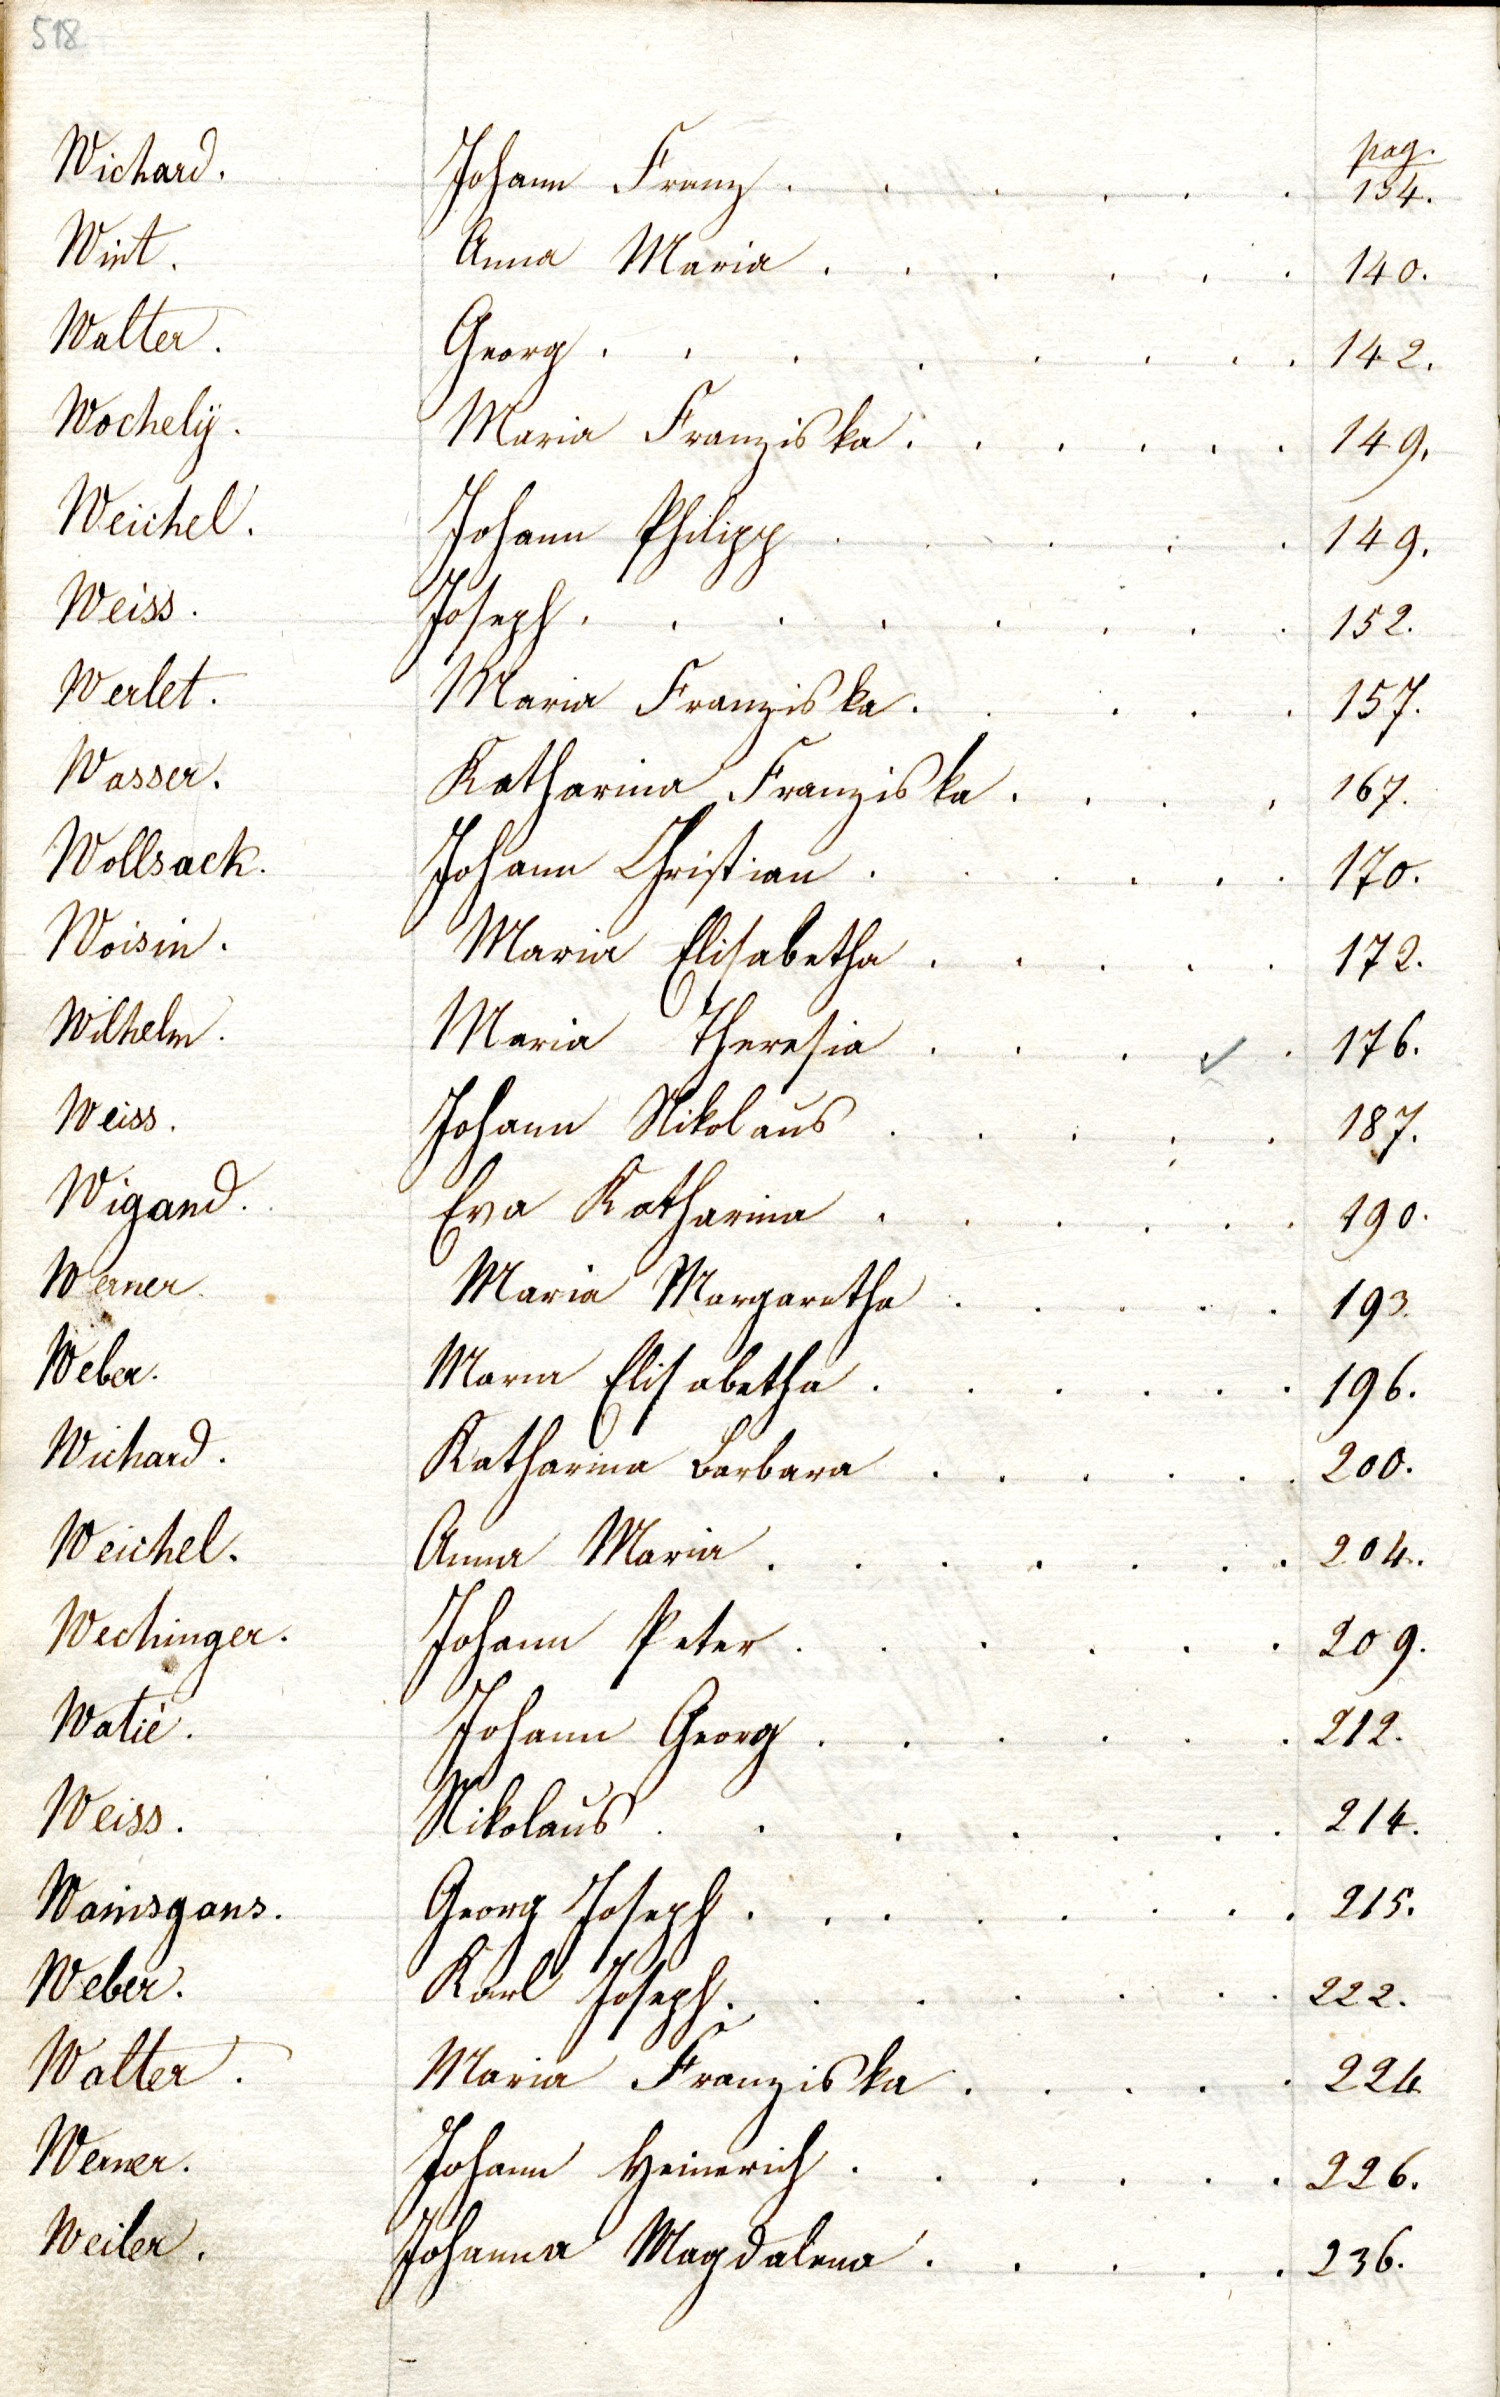 518
pag.
Wichard. Johann Franz . . . . . . 134.
Wint. Anna Maria . . . . . . 140.
Walter. Georg . . . . . . . . 142.
Wochelÿ. Maria Franziska . . . . . . 149.
Weichel. Johann Philipp . . . . . 149.
Weiss. Joseph . . . . . . . . 152.
Werlet. Maria Franziska . . . . . 157.
Wasser. Katharina Franziska . . . . 167.
Wollsack. Johann Christian . . . . . . 170.
Woisin. Maria Elisabetha . . . . . 172.
Wilhelm. Maria Theresia . . . . . 176.
Weiss. Johann Nikolaus . . . . . 187.
Wigand. Eva Katharina . . . . . . 190.
Werner. Maria Margaretha . . . . . 193.
Weber. Maria Elisabetha . . . . . . 196.
Wichard. Katharina Barbara . . . . . . 200.
Weichel. Anna Maria . . . . . . . 204.
Wechinger. Johann Peter . . . . . . 209.
Watié. Johann Georg . . . . . . 212.
Weiss. Nikolaus . . . . . . . 214.
Wainsgans. Georg Joseph . . . . . . . . 215.
Weber. Karl Joseph . . . . . . . 222.
Walter. Maria Franziska . . . . . 224
Werner. Johann Heinerich . . . . . . 226.
Weiler. Johanna Magdalena . . . . . 236.